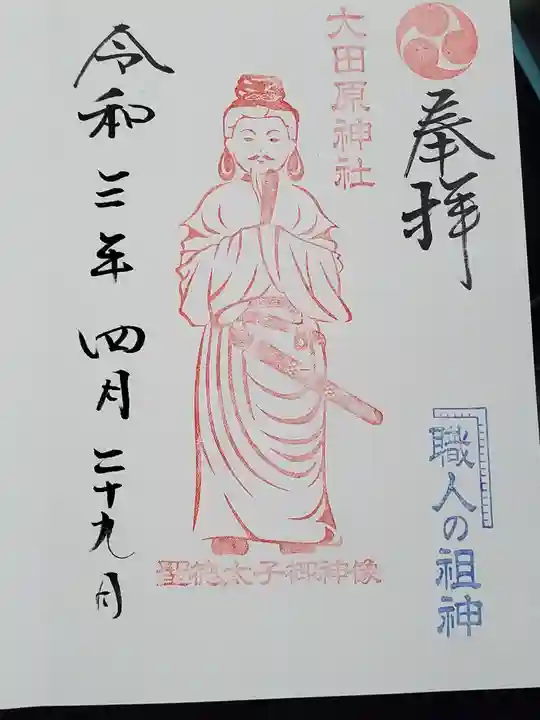 奉拝
職人の祖神
大田原神社
聖徳太子御神像
令和三年四月二十九日